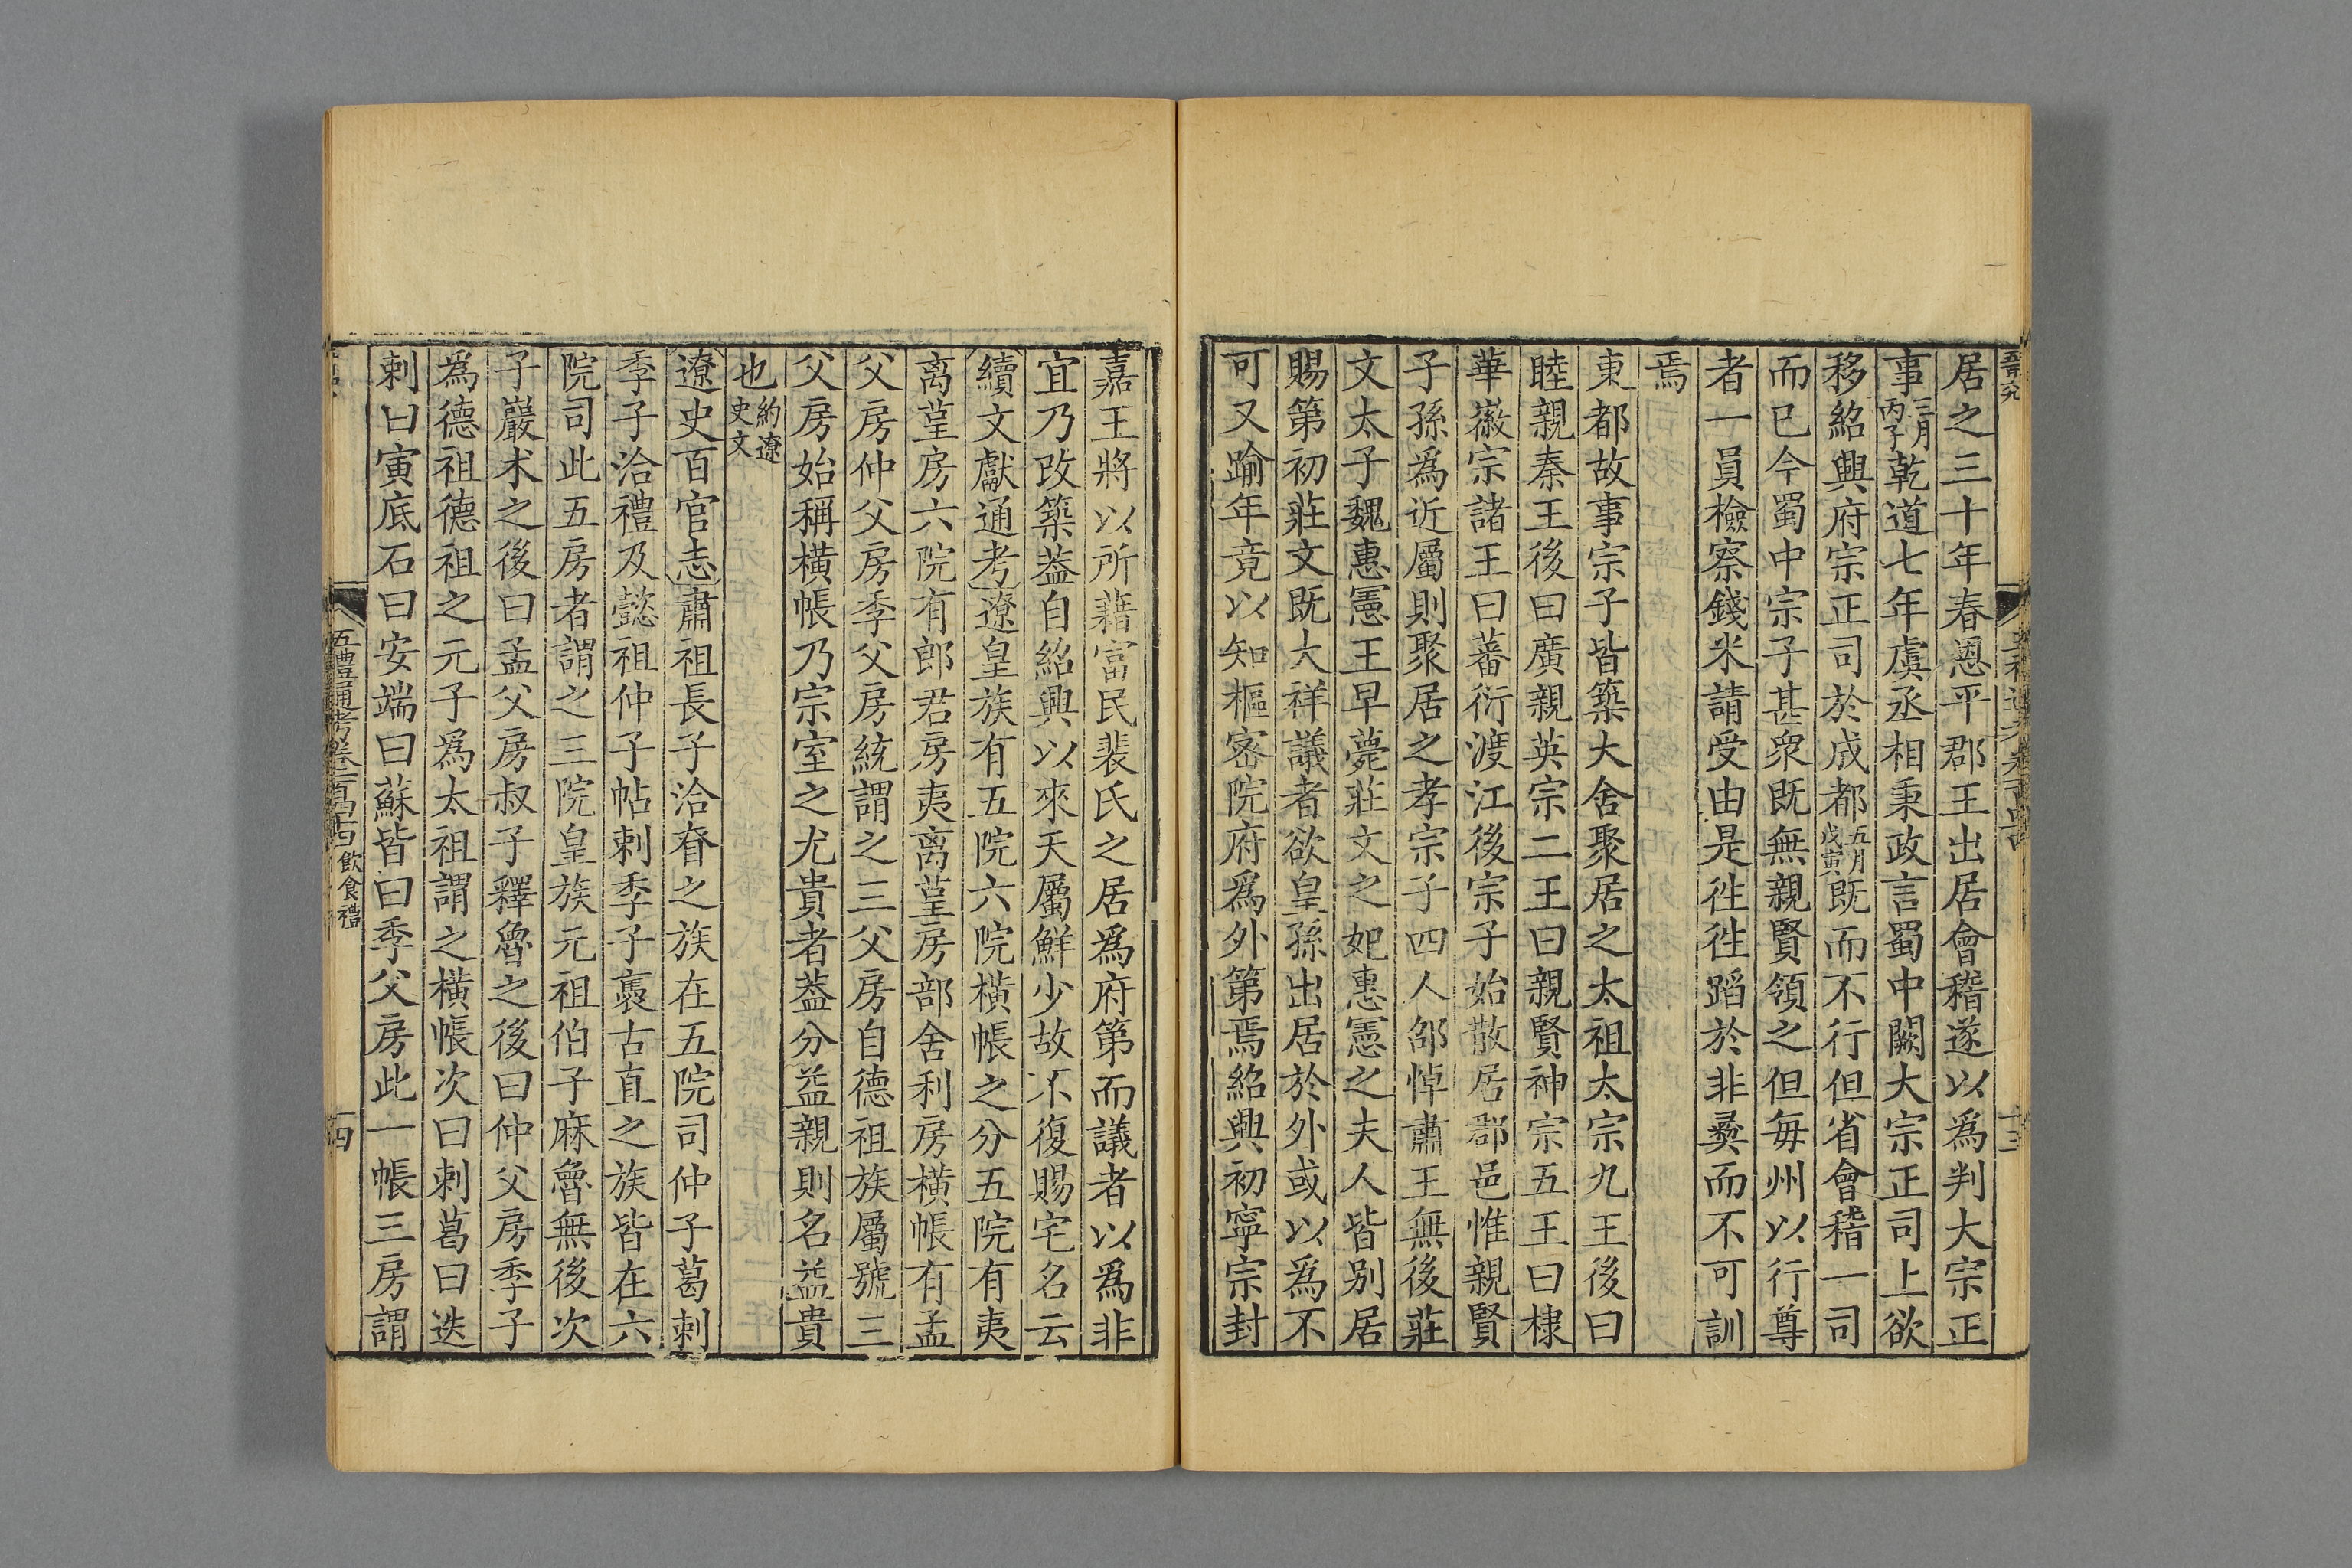 居之三十年春恩平郡王出居會稽遂以爲判大宗正
事三月丙子乾道七年虞丞相秉政言蜀中闕大宗正司上欲
移紹興府宗正司於成都五月戊寅既而不行但省會稽一司
而已今蜀中宗子甚衆既無親賢領之但每州以行尊
者一員檢察錢米請受由是徃徃蹈於非彞而不可訓
焉
東都故事宗子皆築大舍聚居之太祖太宗九王後曰
睦親秦王後曰廣親英宗二王曰親賢神宗五王曰棣
華徽宗諸王曰蕃衍渡江後宗子始散居郡邑惟親賢
子孫爲近屬則聚居之孝宗子四人邵悼肅王無後莊
文太子魏惠憲王早薨莊文之妃惠憲之夫人皆别居
賜第初莊文既大祥議者欲皇孫出居於外或以爲不
可又踰年竟以知樞密院府爲外第焉紹興初寧宗封
嘉王將以所藉富民裴氏之居爲府第而議者以爲非
宜乃改築葢自紹興以來天屬鮮少故不復賜宅名云
續文獻通考遼皇族有五院六院橫帳之分五院有夷
离堇房六院有郎君房夷离堇房部舍利房橫帳有孟
父房仲父房季父房統謂之三父房自德祖族屬號三
父房始稱橫帳乃宗室之尤貴者葢分益親則名益貴
也約遼史文
遼史百官志肅祖長子洽眘之族在五院司仲子葛剌
季子洽禮及懿祖仲子帖剌季子裹古直之族皆在六
院司此五房者謂之三院皇族元祖伯子麻魯無後次
子巖木之後曰孟父房叔子釋魯之後曰仲父房季子
爲德祖德祖之元子爲太祖謂之橫帳次曰剌葛曰迭
剌曰寅底石曰安端曰蘇皆曰季父房此一帳三房謂
五禮通考卷一百四十四 飲食禮